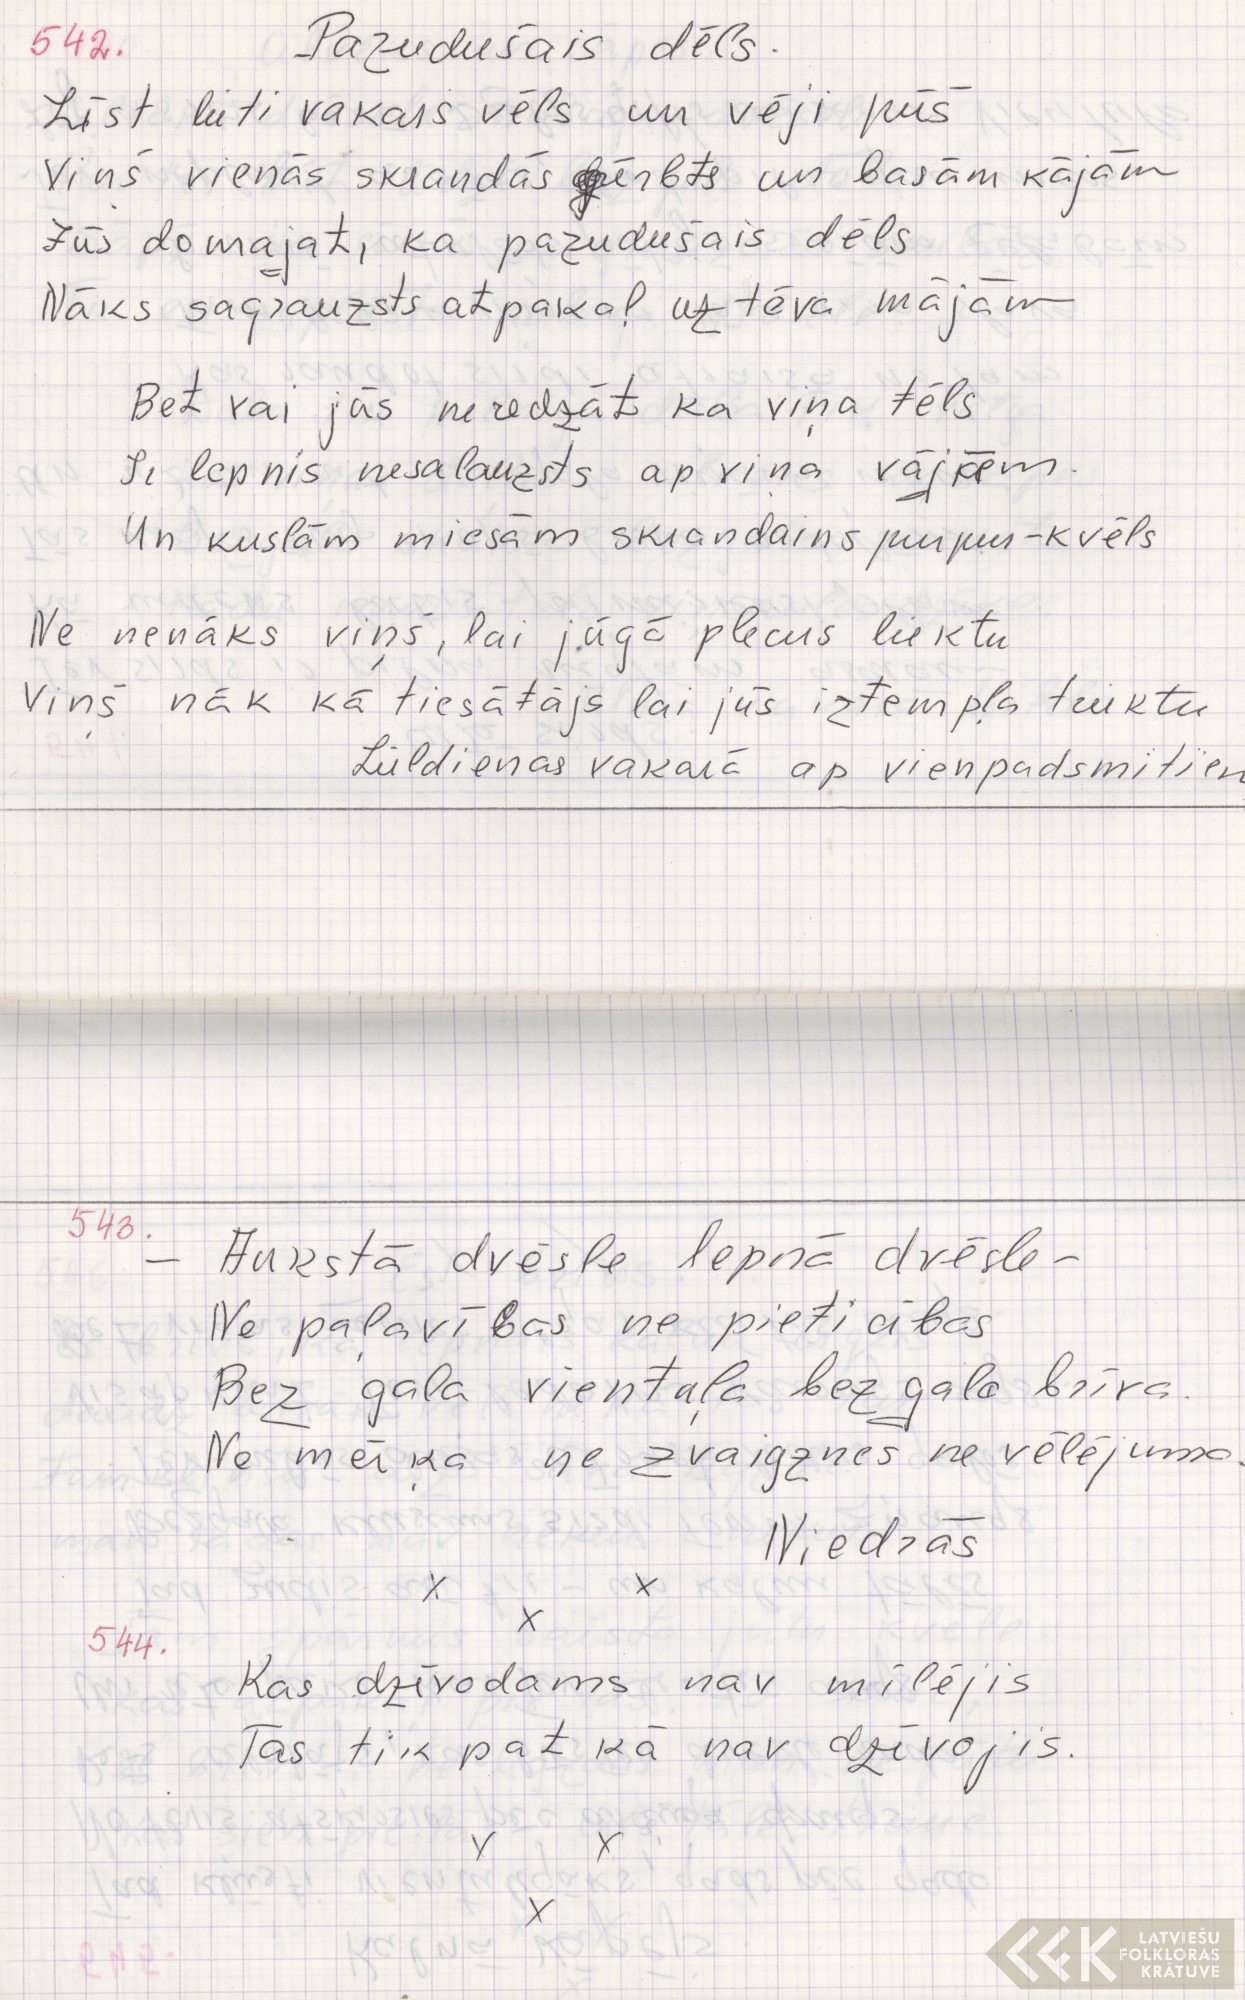 542. Pazudušais dēls.
Līst lieti vakars vēls un vēji pūš
Viņš vienās skrandās ģērbts un basām kājām
Jūs domajat, ka pazudušais dēls
Nāks sagrauzsts atpakaļ uz tēva mājām
Bet vai jūs neredzāt ka viņa tēls
Ir lepnis nesalauzsts ap viņa vājēm.
Un kuslām miesām skrandains purpur-kvēls
Ne nenāks viņš, lai jūgā plecus liektu
Viņš nāk kā tiesātājs lai jūs iztempļa triektu
Lūldienas vakarā ap vienpadsmitien
543.
- Aukstā dvēsle lepnā dvēsle -
Ne paļavības ne pieticības
Bez gala vientuļa bez gala brīva.
Ne mērķa ne zvaigznes ne vēlējuma.
Niedrās
x x
x
544.
Kas dzīvodams nav mīlējis
Tas tik pat kā nav dzīvojis.
x x
x
LATVIEŠU
FOLKLORAS
KRĀTUVE